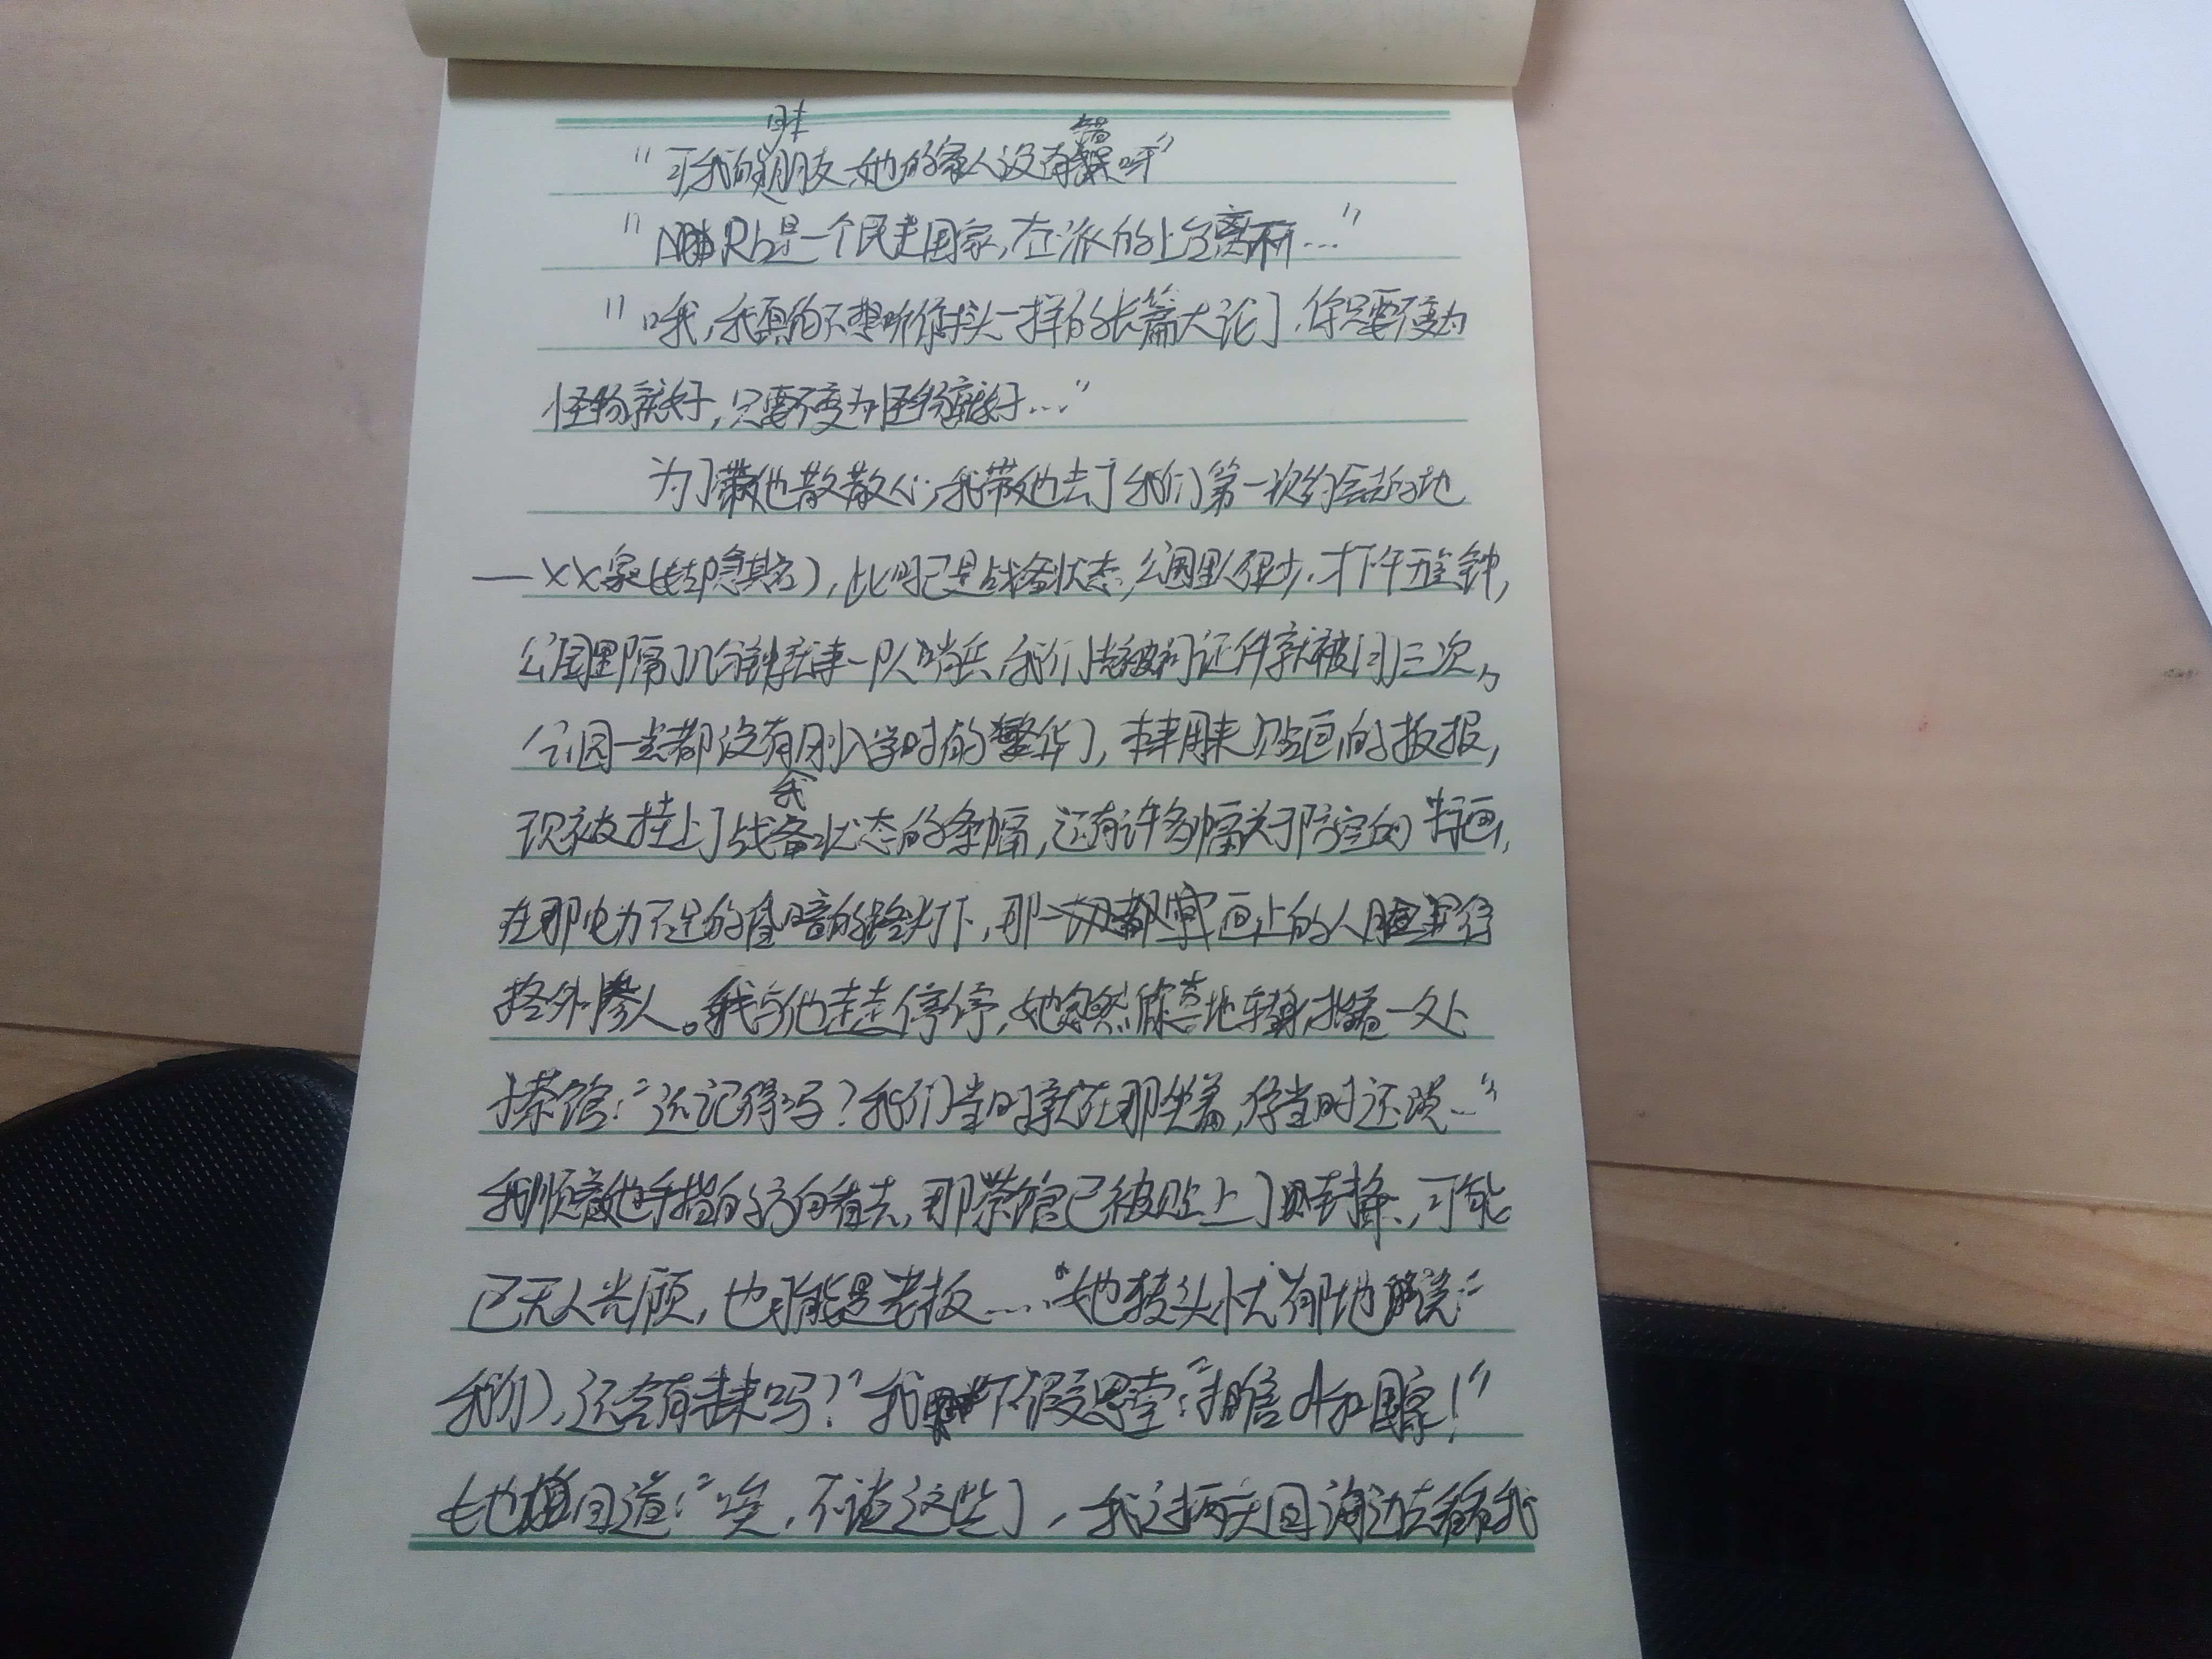 "可我的朋友,她的家人没有错呀"
Rb是一个民主国家,左派的上台离不开…"
"哦,我真的不想听你一样的长篇大论了,你只要不变为
怪物就好,只要不变为怪物就好…"
为了带她散散心,我带她去了我们第一次约会的地
—XX泉(隐其名),此时已是战备状态,公园里人很少,才下午五点钟,
公园里隔几分钟就来一队哨兵,我们光被问证件就被问了三次,
公园一点都没有刚入学时的繁华了,本来用来贴画的板报,
现被挂上了战备状态的条幅,还有许多幅关于防空的画,
在那电力不足的昏暗的路灯下,那一切都画上的人脸显得
格外瘆人。我与她走走停停,她突然转身,指着一处
小茶馆:"还记得吗?我们当时就在那坐着,你当时还说…"
我顺着她手指的方向看去,那茶馆已被贴上了封条,可能
已无人光顾,也可能是老板……"她转头忧郁地说:"
我们,还会有未来吗?"我不假思索:"相信我和国家!"
她回道:"唉,不谈这些了,我过两天回海边去看看我